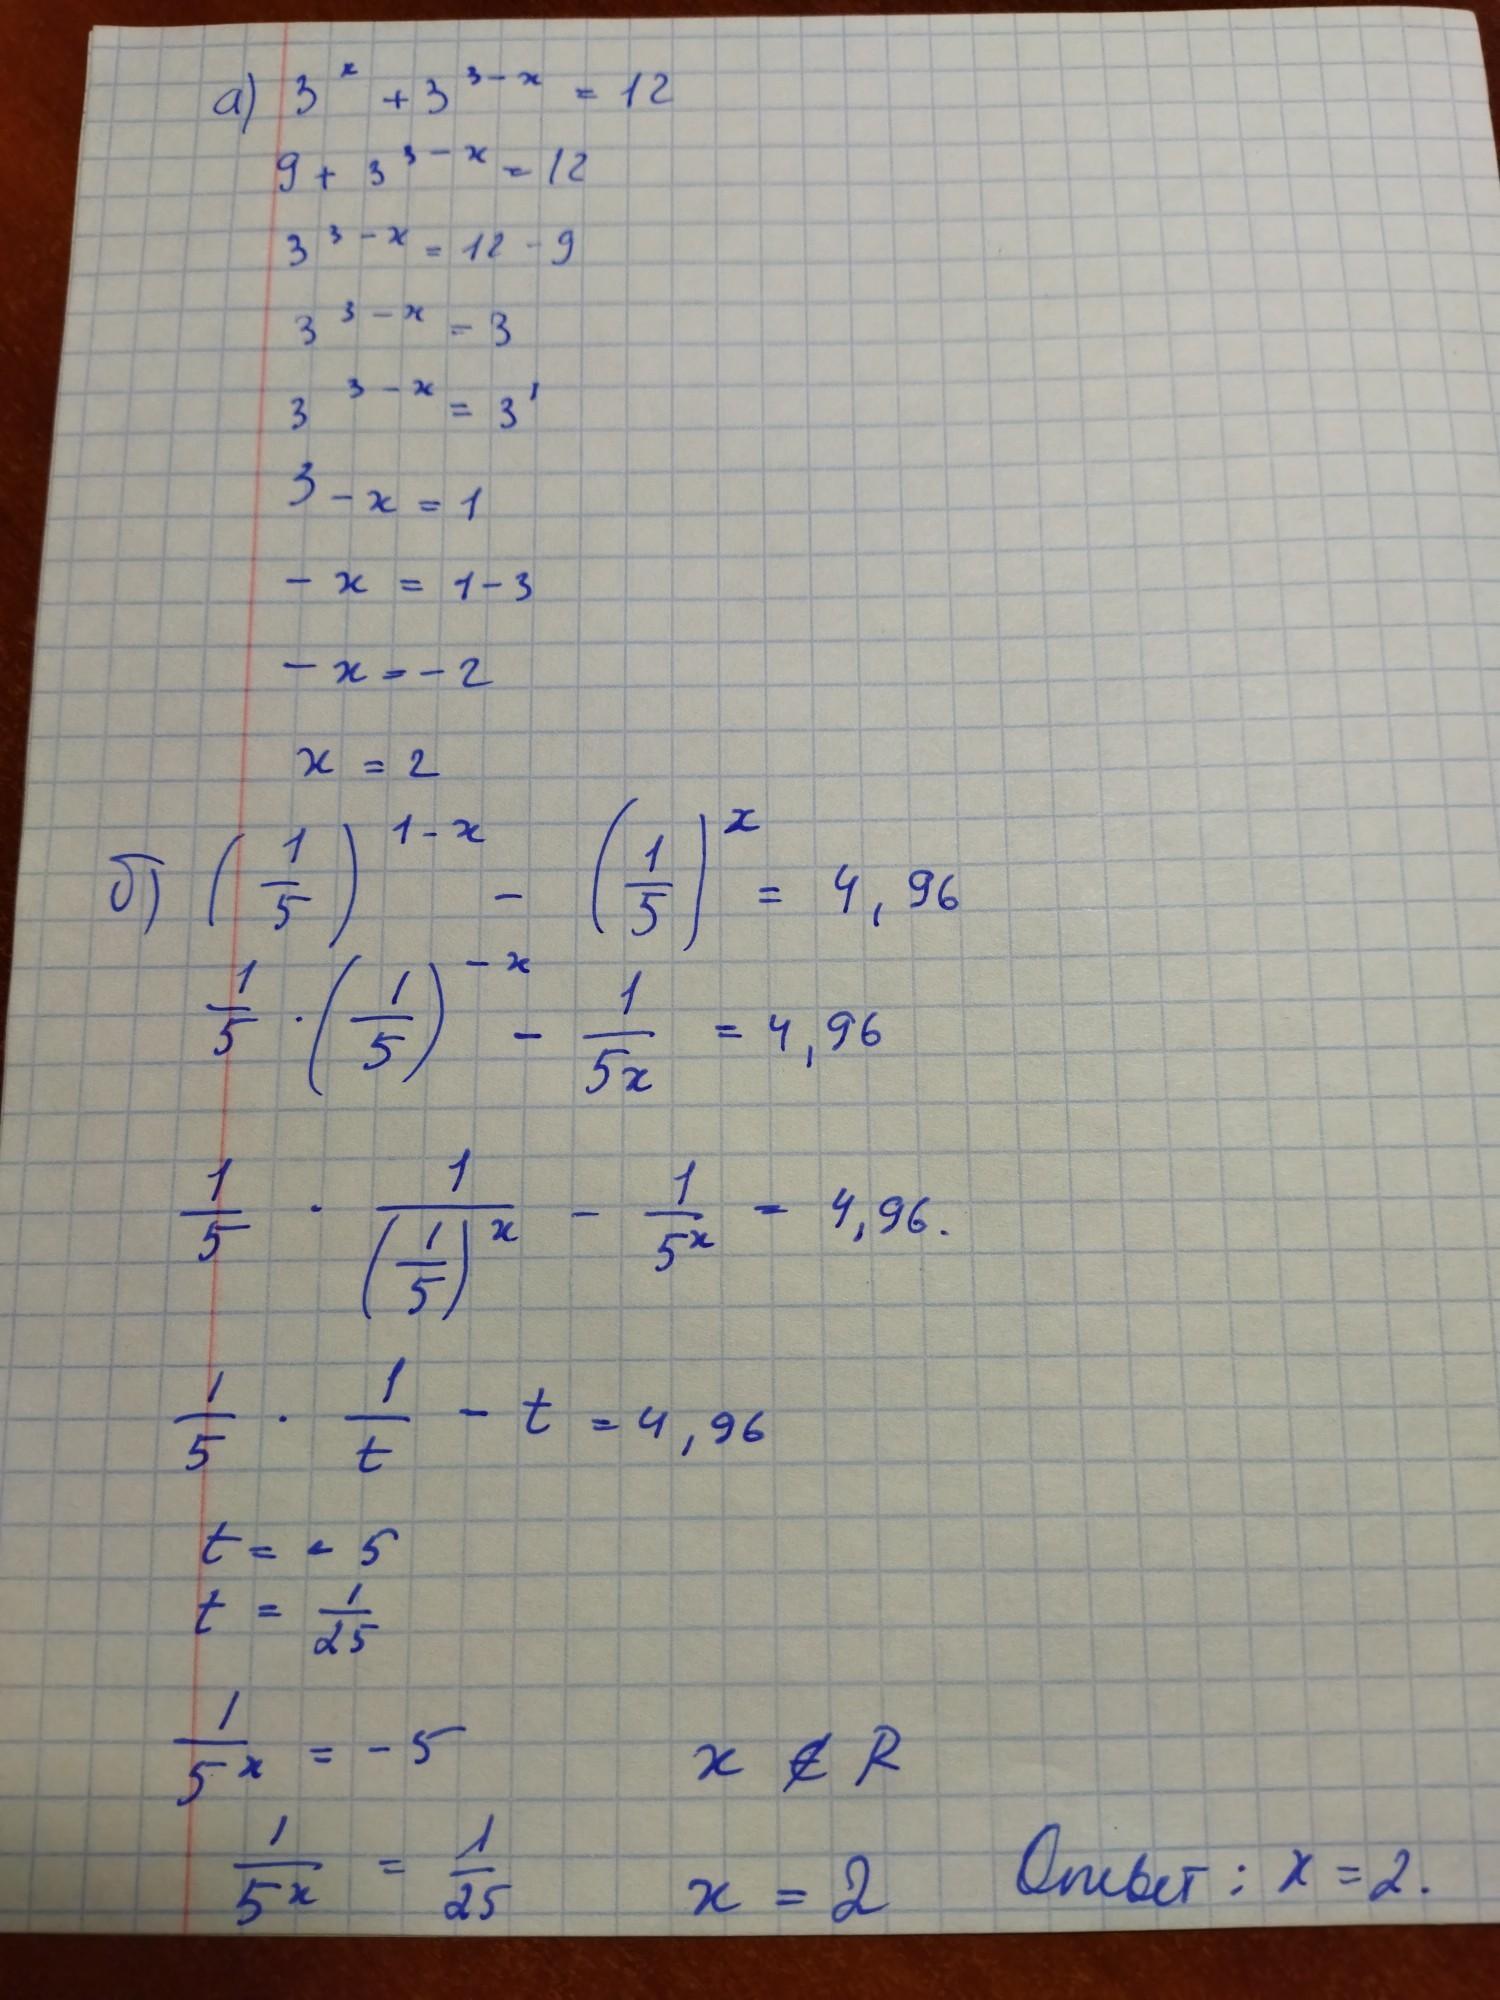 а) 3^x + 3^(3-x) = 12
9 + 3^(3-x) = 12
3^(3-x) = 12 - 9
3^(3-x) = 3
3^(3-x) = 3^1
3 - x = 1
- x = 1 - 3
- x = - 2
x = 2
б) (1/5)^(1-x) - (1/5)^x = 4,96
1/5 · (1/5)^(-x) - 1/5x = 4,96
1/5 · 1/(1/5)^x - 1/5^x = 4,96.
1/5 · 1/t - t = 4,96
t = - 5
t = 1/25
1/5^x = - 5 x ∉ R
1/5^x = 1/25 x = 2 Ответ: x = 2.